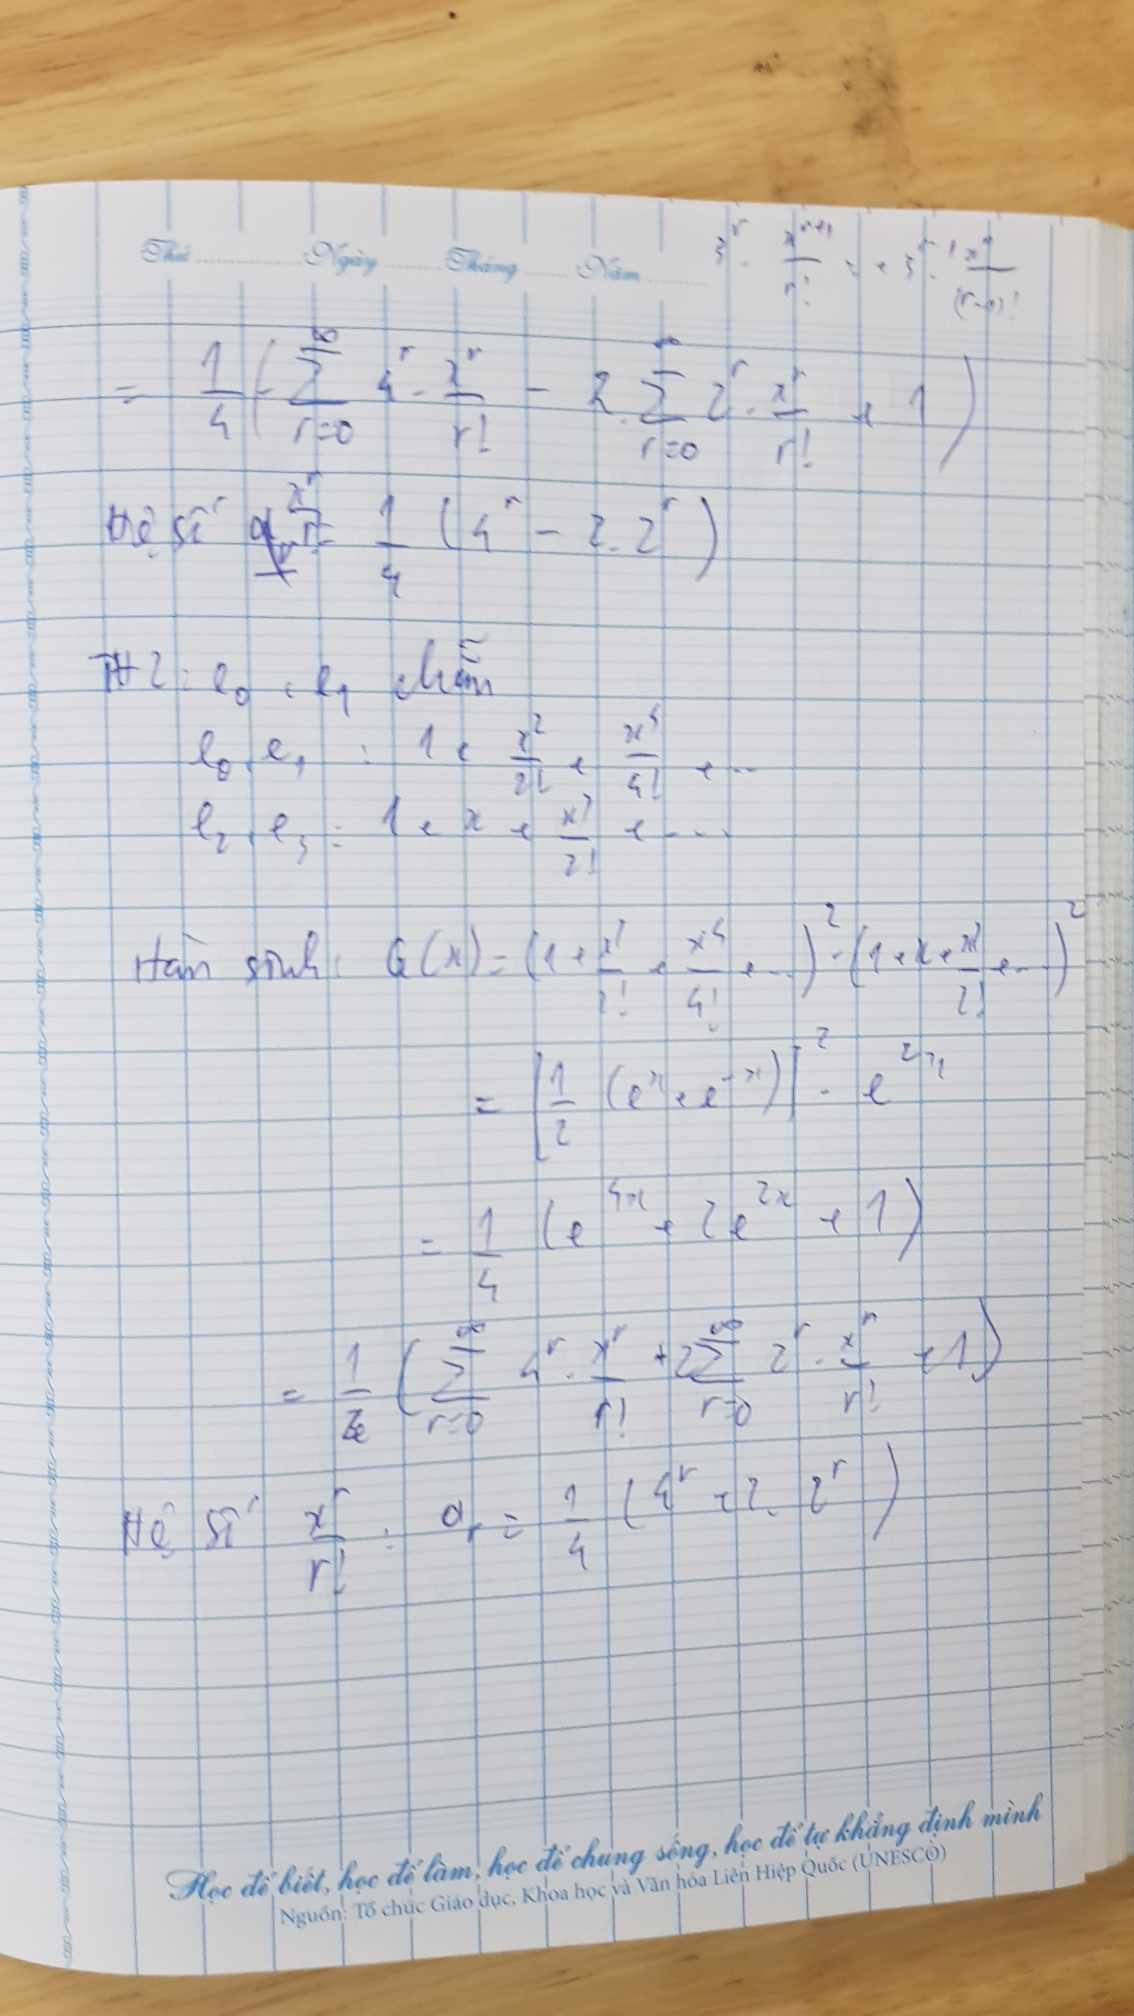 Thứ ........ Ngày ........ Tháng ........ Năm ........
3^r · x^{r+1}/r! = + 3^{r-1} · x^r/(r-1)!
= 1/4 ( ∑_{r=0}^{∞} 4^r · x^r/r! - 2 · ∑_{r=0}^{∞} 2^r · x^r/r! + 1 )
Hệ số x^r/r! = 1/4 ( 4^r - 2 · 2^r )
TH2 : e₀ , e₁ chẵn
e₀, e₁ : 1 + x²/2! + x⁴/4! + ...
e₂, e₃ : 1 + x + x²/2! + ...
Hàm sinh : G(x) = (1 + x²/2! + x⁴/4! + ...)² · (1 + x + x²/2! + ...)²
= [ 1/2 (e^x + e^{-x}) ]² · e^{2x}
= 1/4 ( e^{4x} + 2e^{2x} + 1 )
= 1/4 ( ∑_{r=0}^{∞} 4^r · x^r/r! + 2∑_{r=0}^{∞} 2^r · x^r/r! + 1 )
Hệ số x^r/r! : a_r = 1/4 ( 4^r + 2 · 2^r )
Học để biết, học để làm, học để chung sống, học để tự khẳng định mình
Nguồn: Tổ chức Giáo dục, Khoa học và Văn hóa Liên Hiệp Quốc (UNESCO)